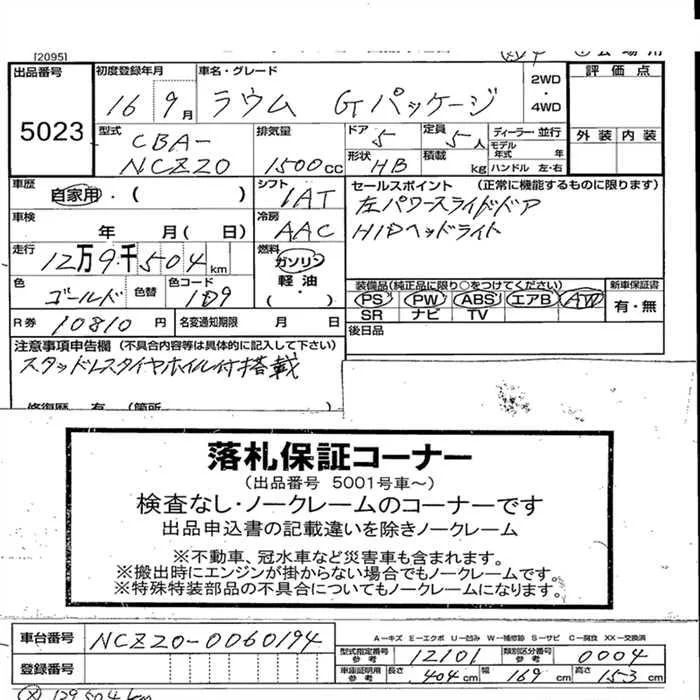 [2095]
出品番号 初度登録年月 車名・グレード 評価点
5023 16年 9月 ラウム Gパッケージ 2WD・4WD
外装 内装
型式 CBA-NCZ20 排気量 1500cc ドア 5 定員 5人 ディーラー・並行
形状 HB 積載 kg モデル年式 年
ハンドル 左・右
車歴 自家用・( ) シフト IAT セールスポイント (正常に機能するものに限ります)
左パワースライドドア
車検 年 月( 日) 冷房 AAC HIDヘッドライト
走行 12万9千504km 燃料 ガソリン 軽油・( )
色 ゴールド 色替 色コード 1D9
装備品(純正品に限り○をつけてください) 新車保証書
PS PW ABS エアB AW 有・無
SR ナビ TV
R券 10810円 名変通知期限 月 日 後日品
注意事項申告欄 (不具合内容等は具体的に記入して下さい)
スタッドレスタイヤホイル付搭載
修復歴 有 (箇所
落札保証コーナー
(出品番号 5001号車~)
検査なし・ノークレームのコーナーです
出品申込書の記載違いを除きノークレーム
※不動車、冠水車など災害車も含まれます。
※搬出時にエンジンが掛からない場合でもノークレームです。
※特殊特装部品の不具合についてもノークレームになります。
A-キズ E-エクボ U-凹み W-補修跡 S-サビ C-腐食 XX-交換済
車台番号 NCZ20-0060194 型式指定番号 参考 12101 類別区分番号 参考 0004
登録番号 車庫証明用 参考 長さ 404cm 幅 169cm 高さ 153cm
129504km